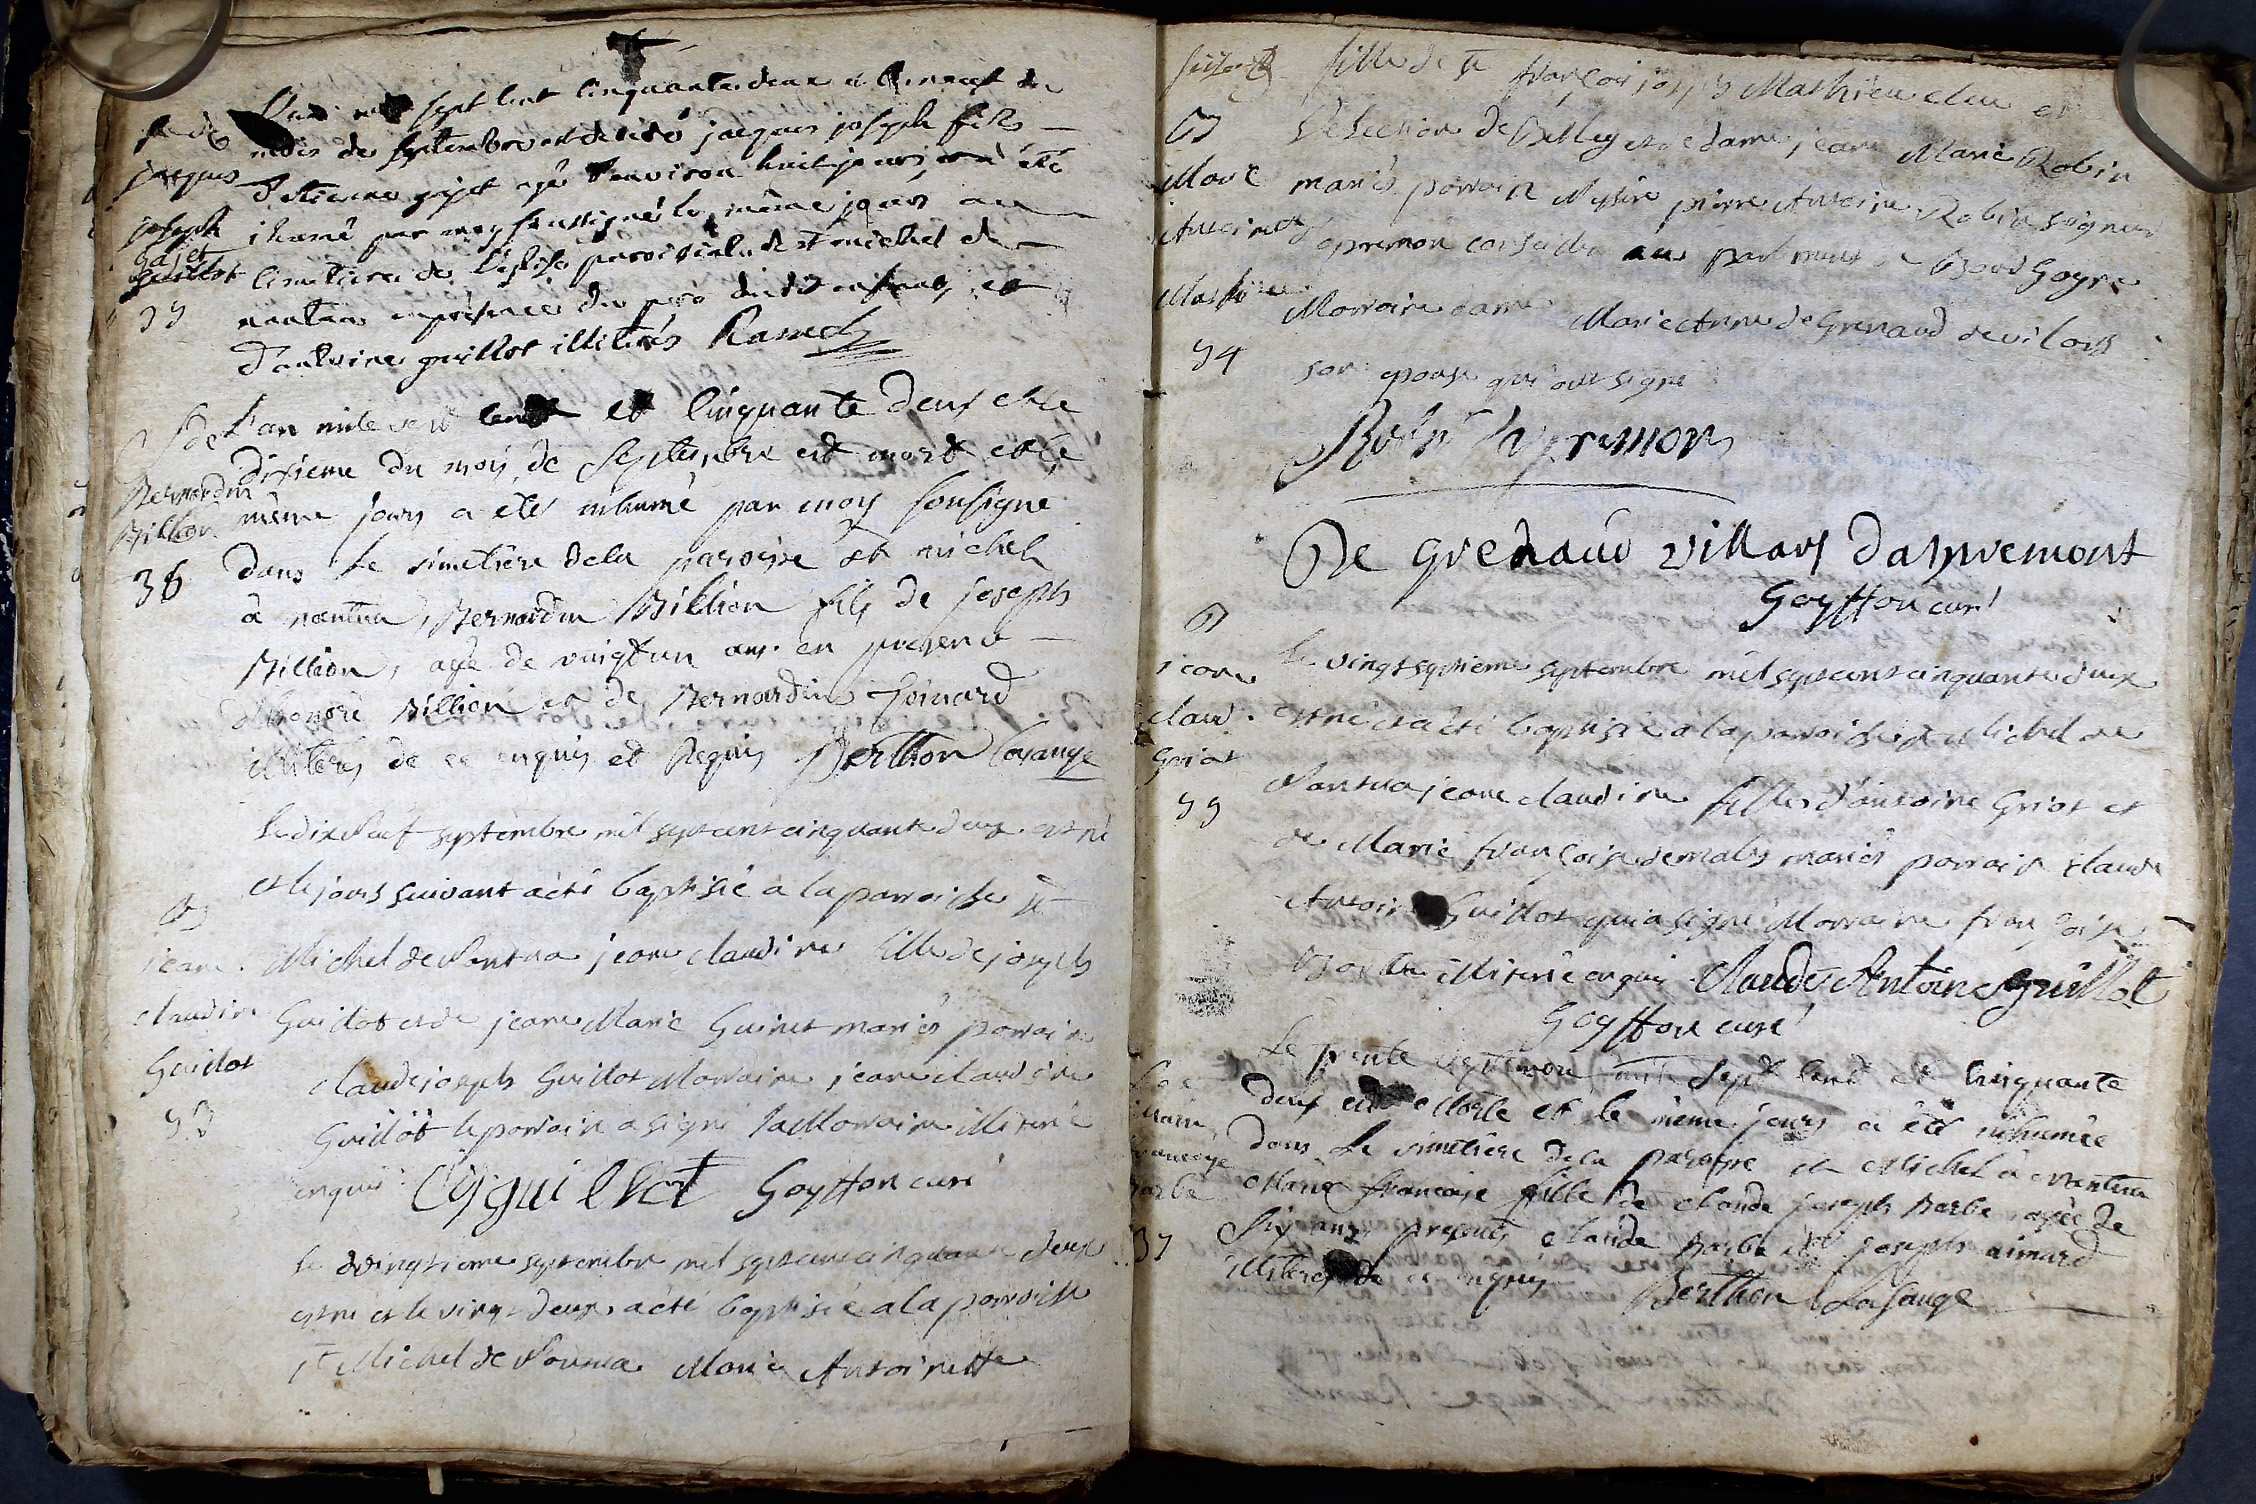 L'an mil sept cent cinquante deux et le neuf du
mois de septembre est decedé jacques joseph fils
d'etienne gajet agé d'environ huit jours, et a été
ihumé par moy soussigné le même jour au
cimetiere de l'eglise parroissiale de st michel de
nantua en presence du pere dudit enfant, et
d'antoine guillot illiterés Ramel
jacques
joseph
gajet
guillot
35
L'an mile sept cent et cinquante deux et le
dixieme du mois de Septembre est mort et le
même jours a eté inhumé par moy sousigné
dans le simetière de la paroisse st michel
à nantua, Bernardin Billion fils de joseph
Billion, agé de vingt un ans en presence
d'honoré Billion et de Bernardin Goinard
illiterés de ce enquis et Requis Berthon Lasauge
S de
Bernardin
Billion
36
Le dix neuf septembre mil sept cent cinquante deux est né
et le jours suivant a été baptisée a la parroisse st
Michel de Nantua jeane claudine fille de joseph
Guillot et de jeane Marie Guinet mariés parrain
claude joseph Guillot Marraine jeane claudine
Guillot le parrain a signé la Marraine illiterée
enquise Cjguillot Goyffon curé
B
jeane
claudine
Guillot
53
le vingtieme septembre mil sept cent cinquante deux
est né et le vingt deux a été baptisée a la parroisse
st Michel de Nantua Marie Antoinette
fille de sr françois joseph Mathieu eleu en
l'election de Belley et de dame jeane Marie Robin
mariés parrain Messire pierre Antoine Robin seigneur
d'apremon conseiller au parlement de Bourgogne
Marraine dame Marie Anne de Grenaud de vilars
son epouse qui ont signé
Robin dapremon
De Grenaud villars dapremont
Goyffon curé
B
Marie
Antoinette
Mathieu
54
le vingt septieme septembre mil sept cent cinquante deux
est né et a été baptisée a la parroisse st Michel de
Nantua jeane claudine fille d'antoine Griot et
de Marie françoise demales mariés parrain claude
Antoine Guillot qui a signé Marraine françoise
illiterée enquise Claude Antoine Guillot
Goyffon curé
B
jeane
claud.
Griot
55
Le trente septembre mil sept cent et cinquante
deux est morte et le même jours a été inhumée
dans le simetière de la paroisse st Michel à nantua
Marie francoise fille de claude joseph Barbe agée de
six ans, presents claude Barbe et joseph aimard
illiterés de ce enquis Berthon Lasauge
marie
francoise
barbe
37